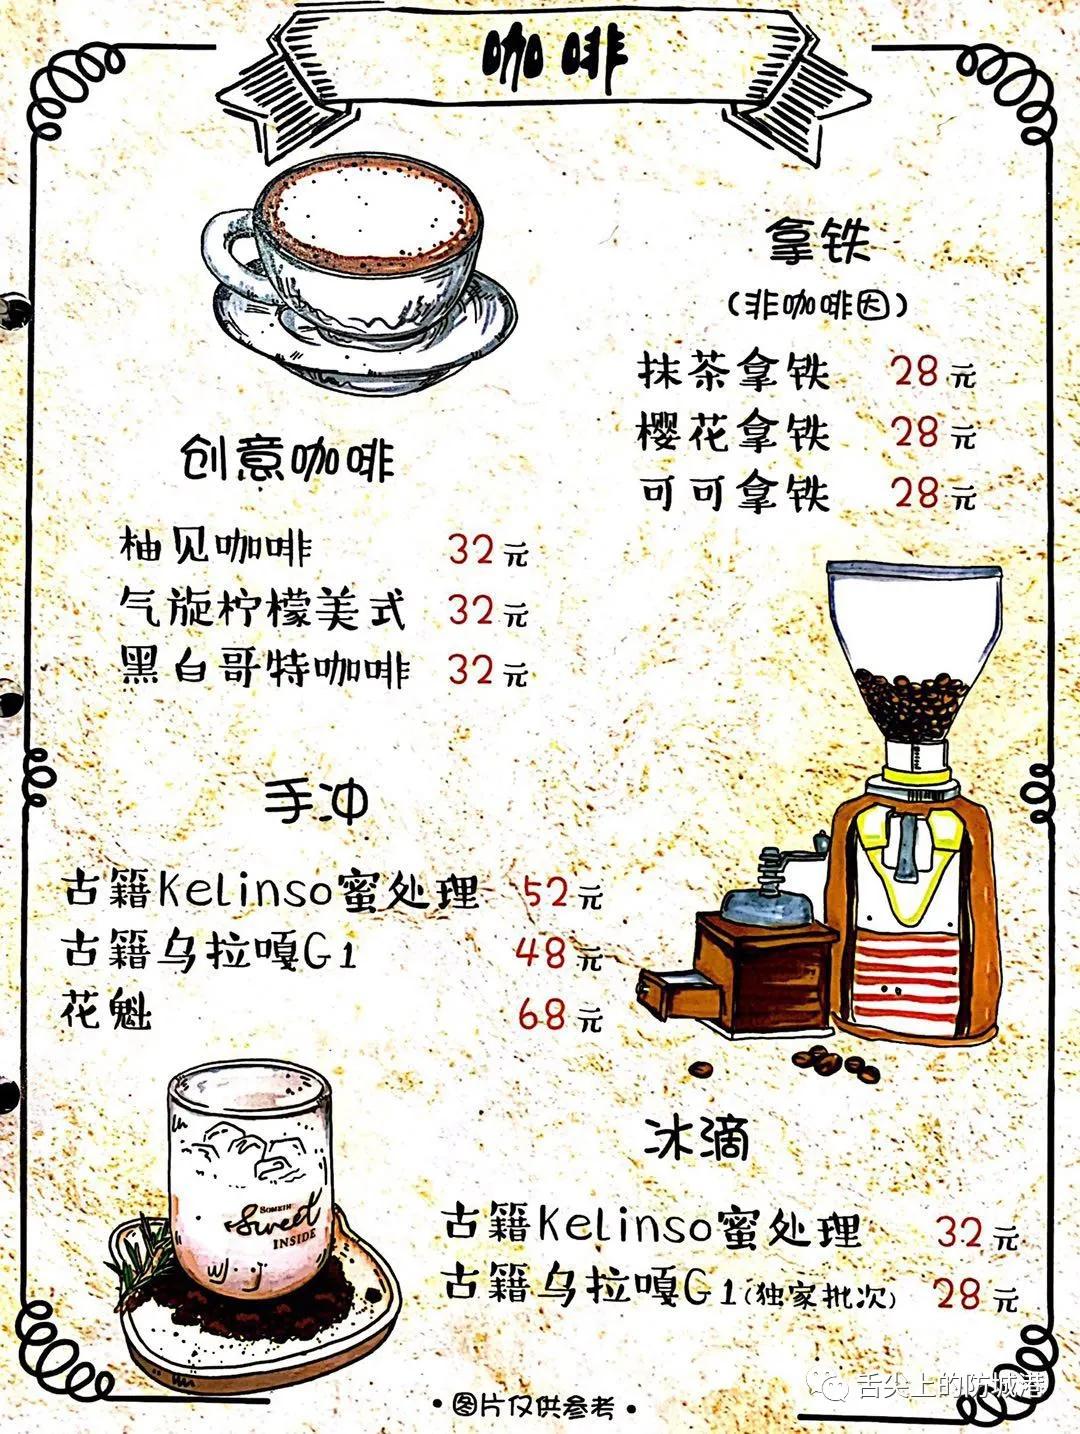 咖啡
拿铁
（非咖啡因）
抹茶拿铁 28元
樱花拿铁 28元
可可拿铁 28元
创意咖啡
柚见咖啡 32元
气旋柠檬美式 32元
黑白哥特咖啡 32元
手冲
古籍Kelinso蜜处理 52元
古籍乌拉嘎G1 48元
花魁 68元
SOMEIN
Sweet
INSIDE
冰滴
古籍Kelinso蜜处理 32元
古籍乌拉嘎G1(独家批次) 28元
·图片仅供参考·
舌尖上的防城港